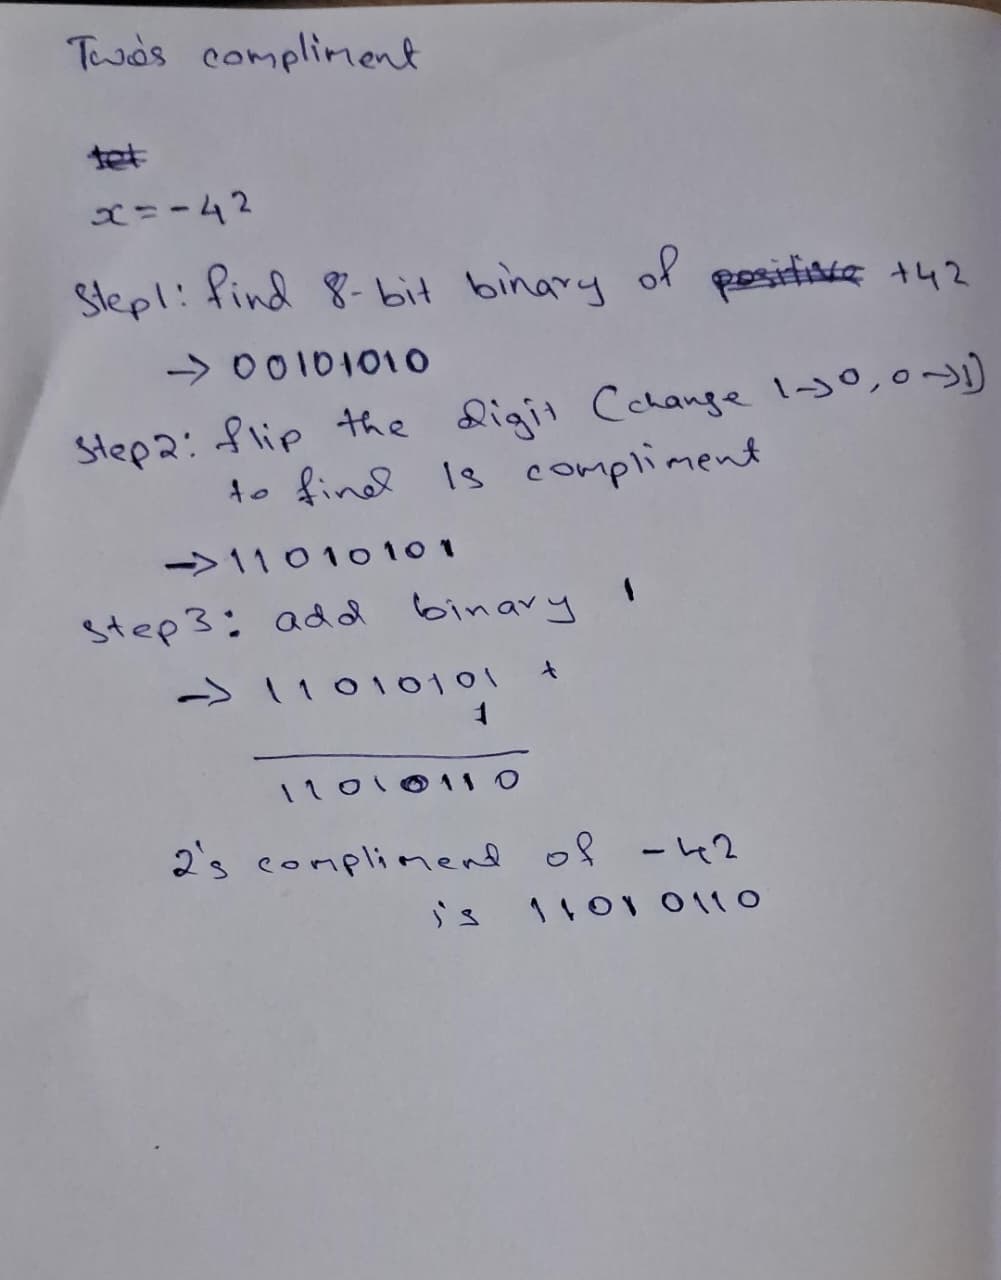 Two's compliment
x=-42
Step1: find 8-bit binary of +42
→ 00101010
Step2: flip the digit (change 1→0, 0→1)
to find 1s compliment
→ 11010101
step3: add binary 1
→ 11010101 +
1
11010110
2's compliment of -42
is 11010110